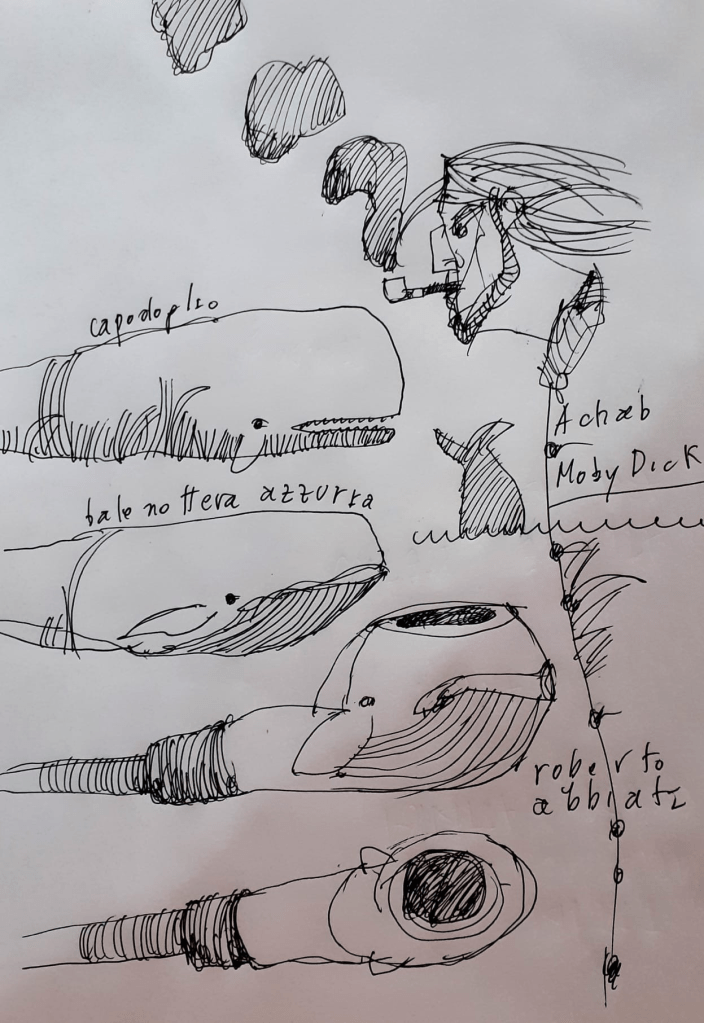 capodoglio
Achab
Moby Dick
balenottera azzurra
roberto
abbiati